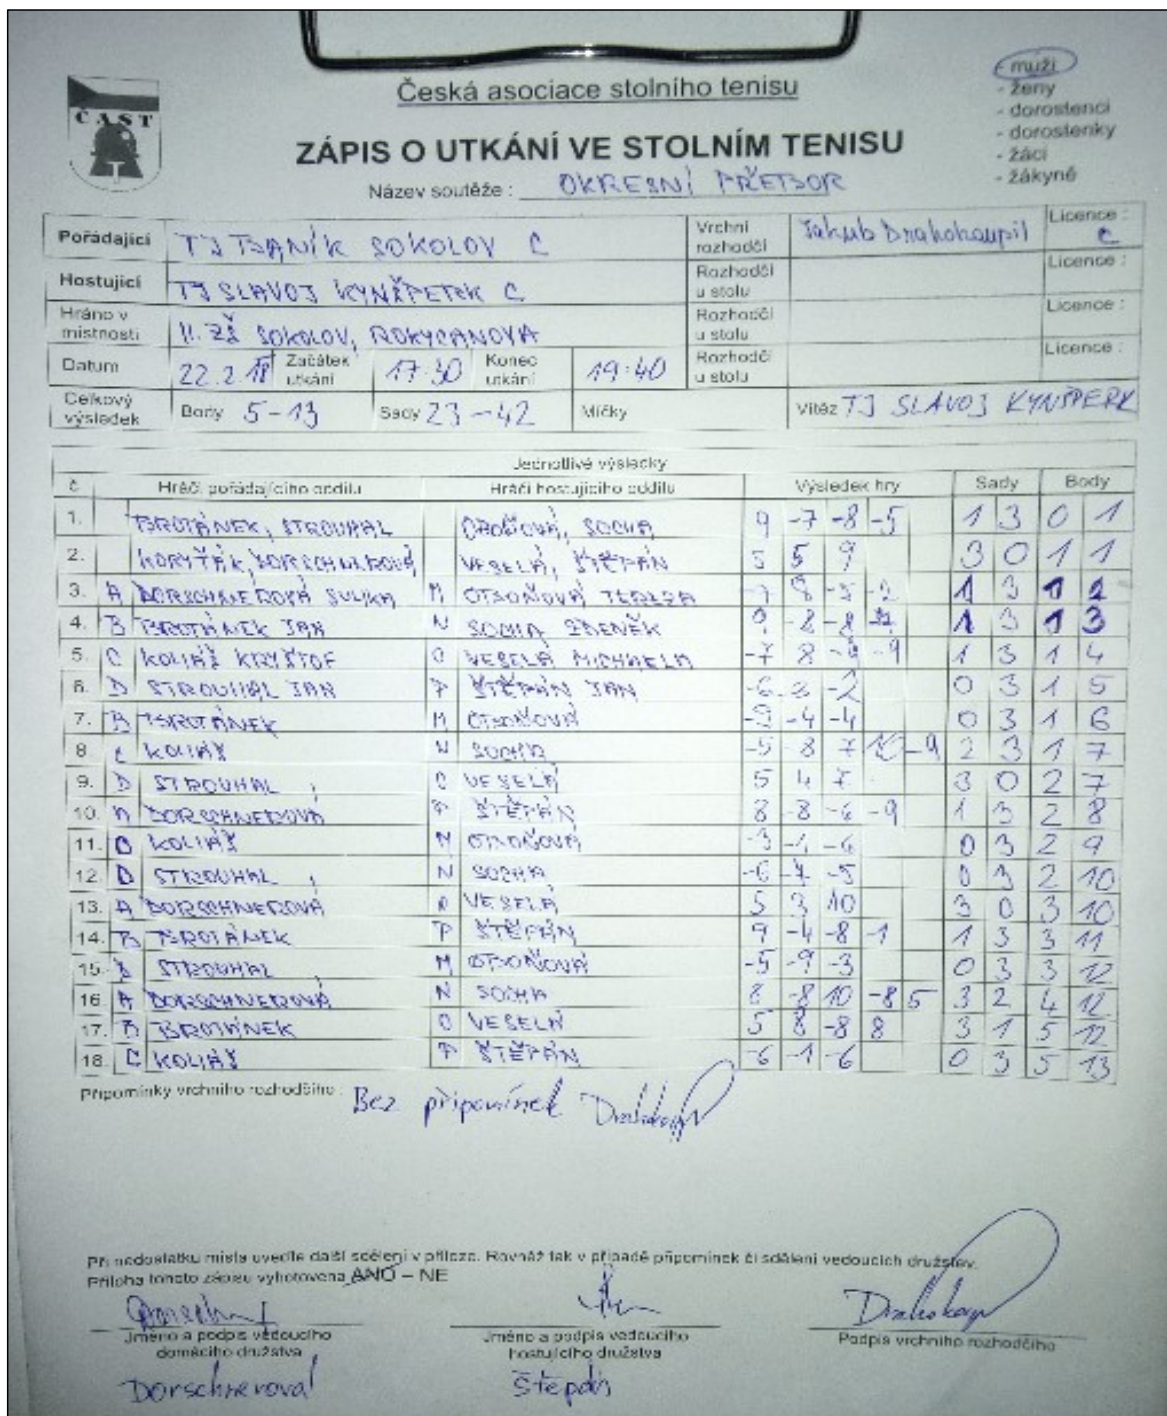 Česká asociace stolního tenisu
ČAST
ZÁPIS O UTKÁNÍ VE STOLNÍM TENISU
- muži
- ženy
- dorostenci
- dorostenky
- žáci
- žákyně
Název soutěže : OKRESNÍ PŘEBOR
Pořádající TJ BANÍK SOKOLOV C Vrchní rozhodčí Jakub Drahokoupil Licence : C
Hostující TJ SLAVOJ KYNŠPERK C Rozhodčí u stolu Licence :
Hráno v místnosti II. ZŠ SOKOLOV, ROKYCANOVA Rozhodčí u stolu Licence :
Datum 22.2.18 Začátek utkání 17:30 Konec utkání 19:40 Rozhodčí u stolu Licence :
Celkový výsledek Body 5-13 Sady 23-42 Míčky Vítěz TJ SLAVOJ KYNŠPERK
Jednotlivé výsledky
č Hráči pořádajícího oddílu Hráči hostujícího oddílu Výsledek hry Sady Body
1. BROTÁNEK, STROUHAL SOCHA 9 -7 -8 -5 1 3 0 1
2. KORYŤÁK, DORSCHNEROVÁ VESELÁ, ŠTĚPÁN 5 5 9 3 0 1 1
3. A DORSCHNEROVÁ M OTROŇOVÁ TEREZA -7 8 -5 -2 1 3 1 2
4. B BROTÁNEK JAN N SOCHA ZDENĚK 9 -8 -8 1 3 1 3
5. C KOLIÁŠ KRYŠTOF O VESELÁ MICHAELA -7 8 -9 -9 1 3 1 4
6. D STROUHAL JAN P ŠTĚPÁN JAN -6 -3 -2 0 3 1 5
7. B BROTÁNEK M OTROŇOVÁ -9 -4 -4 0 3 1 6
8. C KOLIÁŠ N SOCHA -5 -8 7 10 -9 2 3 1 7
9. D STROUHAL O VESELÁ 5 4 7 3 0 2 7
10. A DORSCHNEROVÁ P ŠTĚPÁN 8 -8 -6 -9 1 3 2 8
11. C KOLIÁŠ M OTROŇOVÁ -3 -4 -6 0 3 2 9
12. D STROUHAL N SOCHA -6 -7 -5 0 3 2 10
13. A DORSCHNEROVÁ O VESELÁ 5 3 10 3 0 3 10
14. B BROTÁNEK P ŠTĚPÁN 9 -4 -8 -1 1 3 3 11
15. D STROUHAL M OTROŇOVÁ -5 -9 -3 0 3 3 12
16. A DORSCHNEROVÁ N SOCHA 8 -8 10 -8 5 3 2 4 12
17. B BROTÁNEK O VESELÁ 5 8 -8 8 3 1 5 12
18. C KOLIÁŠ P ŠTĚPÁN -6 -1 -6 0 3 5 13
Připomínky vrchního rozhodčího : Bez připomínek
Při nedostatku místa uveďte další sdělení v příloze. Rovněž tak v případě připomínek či sdělení vedoucích družstev.
Příloha tohoto zápisu vyhotovena ANO – NE
Jméno a podpis vedoucího domácího družstva
Jméno a podpis vedoucího hostujícího družstva
Podpis vrchního rozhodčího
Dorschnerová
Štěpán